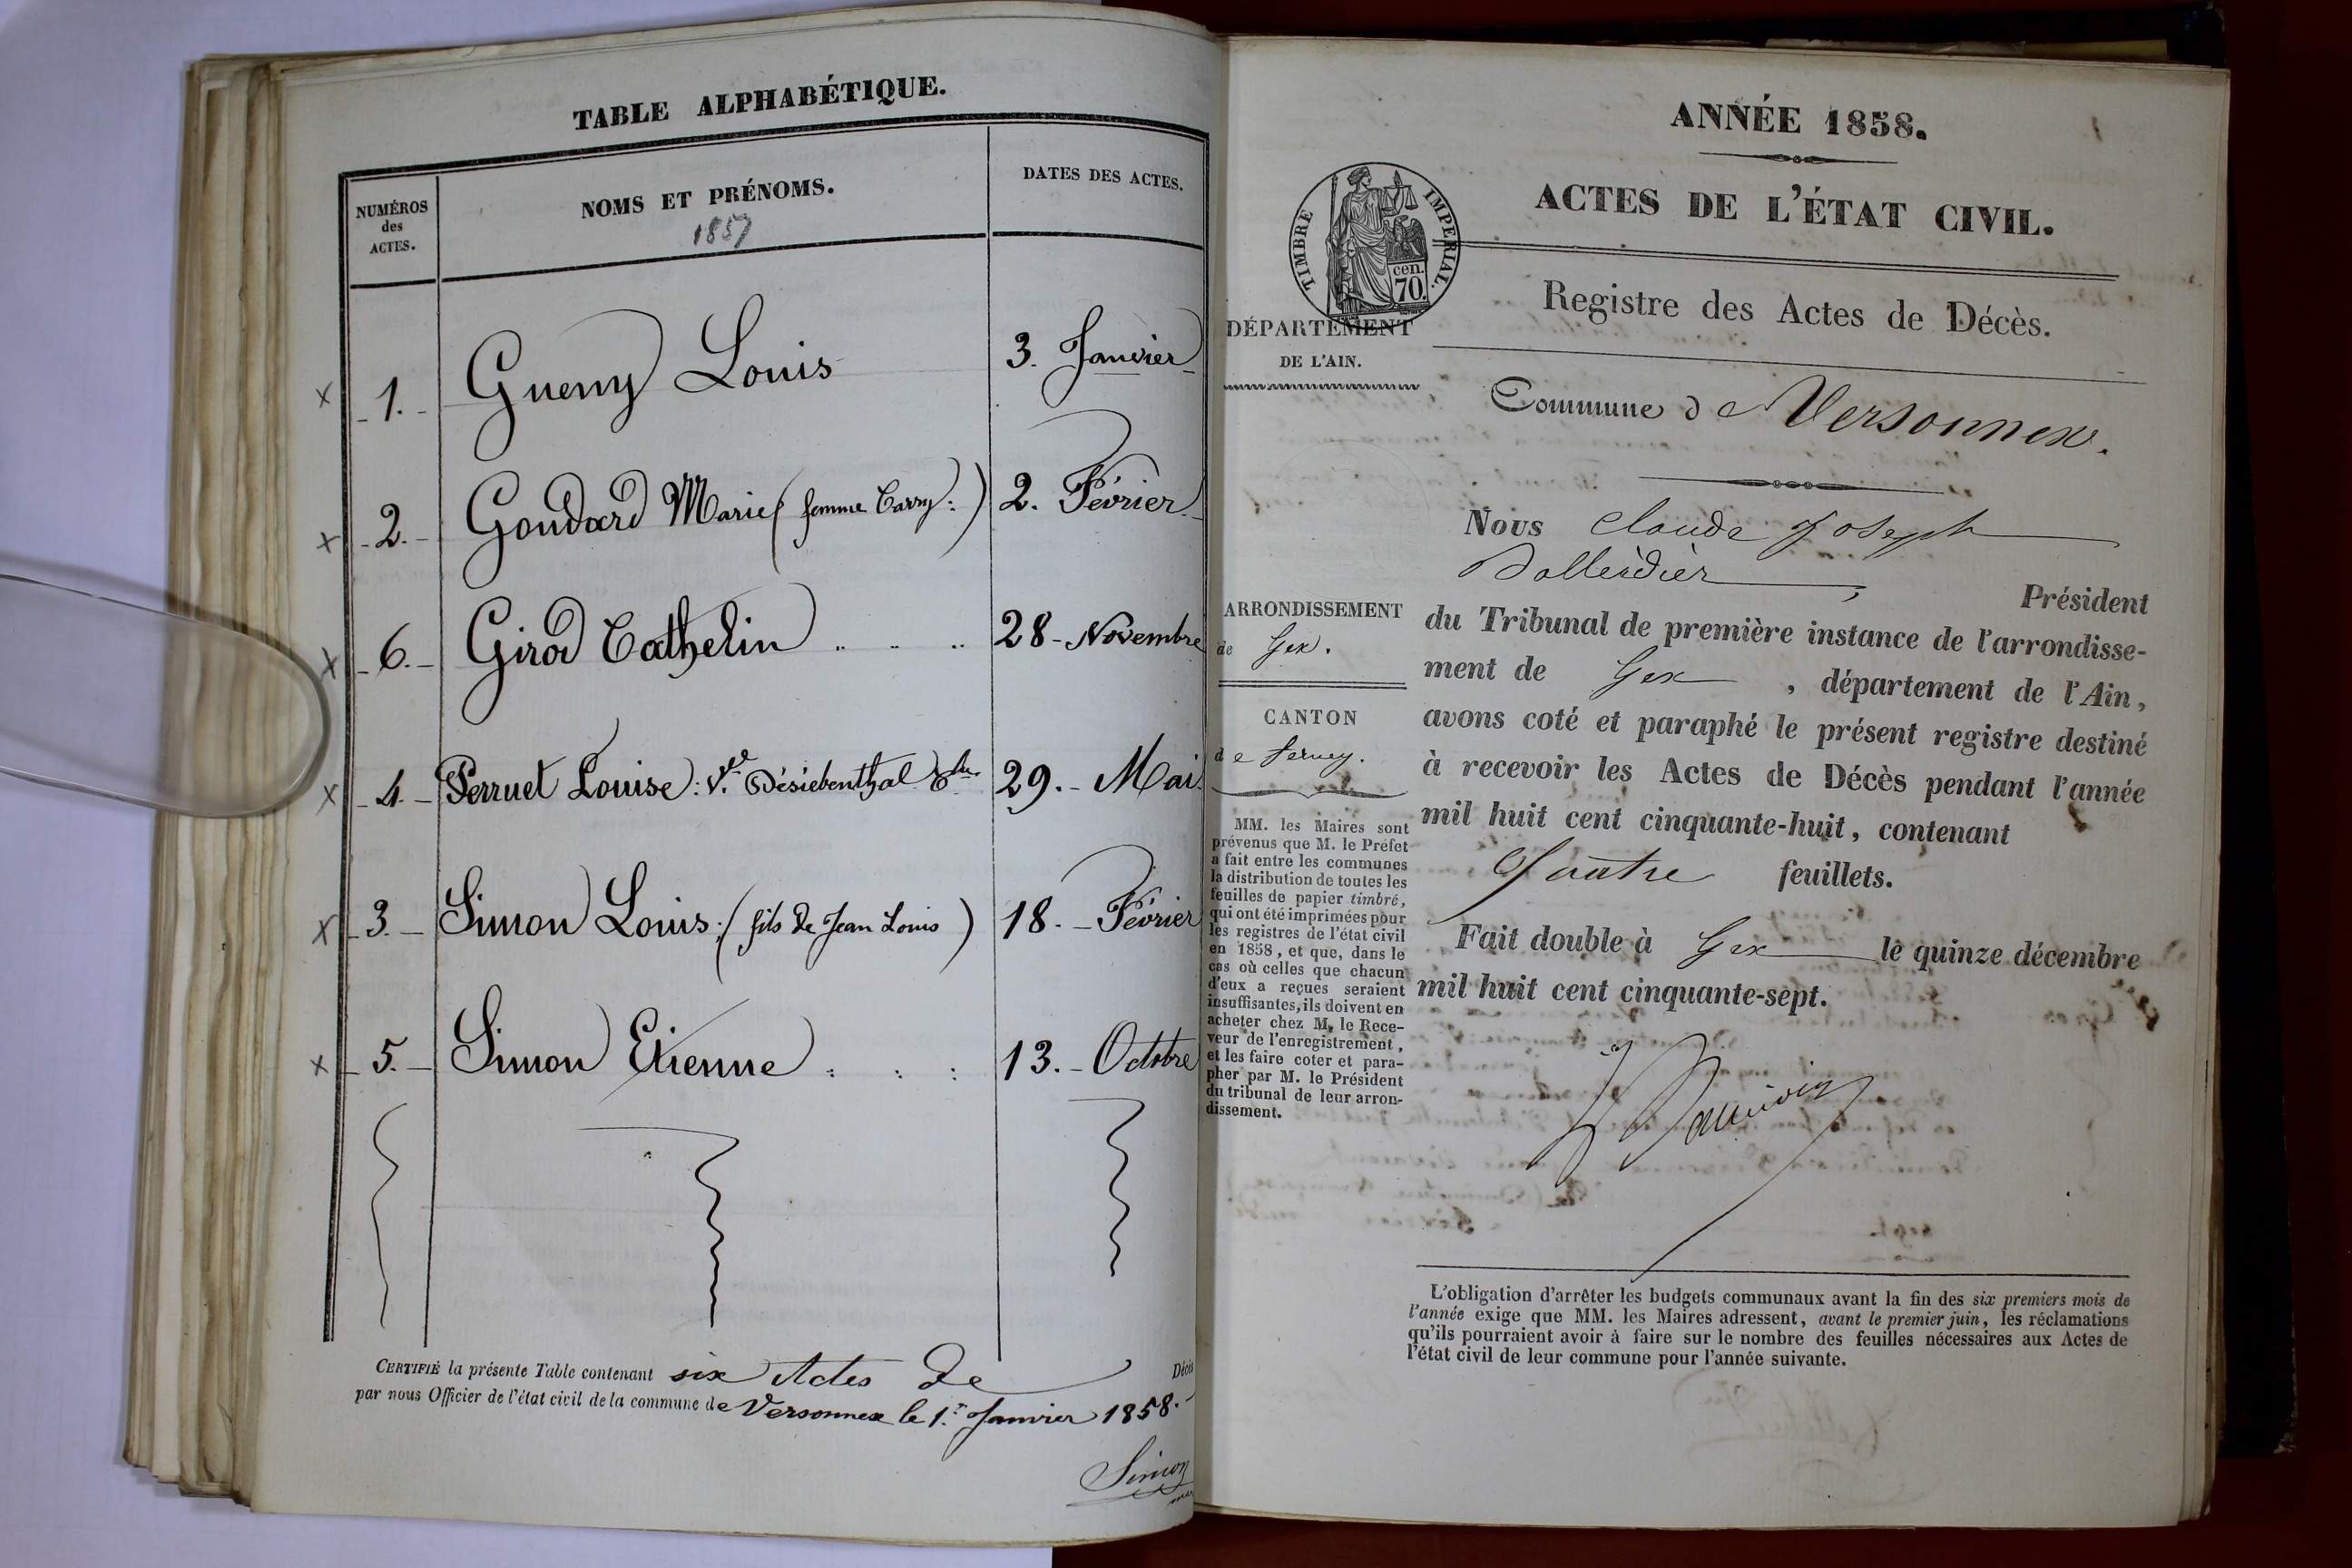 TABLE ALPHABÉTIQUE.
NUMÉROS
des
ACTES.
NOMS ET PRÉNOMS.
1857
DATES DES ACTES.
x 1. Gueny Louis 3. Janvier
x 2. Goudard Marie (femme Carry:) 2. Février
x 6. Girod Cathelin 28 - Novembre
x 4. Perruet Louise: Vve Désiebenthal 29. - Mai
x 3. Simon Louis: (fils de Jean Louis) 18. - Février
x 5. Simon Etienne 13. - Octobre
CERTIFIÉ la présente Table contenant six Actes de Décès
par nous Officier de l'état civil de la commune de Versonnex le 1.er Janvier 1858.
Simon
ANNÉE 1858.
1.
ACTES DE L'ÉTAT CIVIL.
TIMBRE IMPERIAL.
cen.
70.
Registre des Actes de Décès.
DÉPARTEMENT
DE L'AIN.
Commune de Versonnex.
ARRONDISSEMENT
de Gex.
CANTON
de Ferney.
MM. les Maires sont
prévenus que M. le Préfet
a fait entre les communes
la distribution de toutes les
feuilles de papier timbré,
qui ont été imprimées pour
les registres de l'état civil
en 1858, et que, dans le
cas où celles que chacun
d'eux a reçues seraient
insuffisantes, ils doivent en
acheter chez M. le Rece-
veur de l'enregistrement,
et les faire coter et para-
pher par M. le Président
du tribunal de leur arron-
dissement.
Nous Claude Joseph
Président
du Tribunal de première instance de l'arrondisse-
ment de Gex, département de l'Ain,
avons coté et paraphé le présent registre destiné
à recevoir les Actes de Décès pendant l'année
mil huit cent cinquante-huit, contenant
feuillets.
Fait double à Gex le quinze décembre
mil huit cent cinquante-sept.
L'obligation d'arrêter les budgets communaux avant la fin des six premiers mois de
l'année exige que MM. les Maires adressent, avant le premier juin, les réclamations
qu'ils pourraient avoir à faire sur le nombre des feuilles nécessaires aux Actes de
l'état civil de leur commune pour l'année suivante.